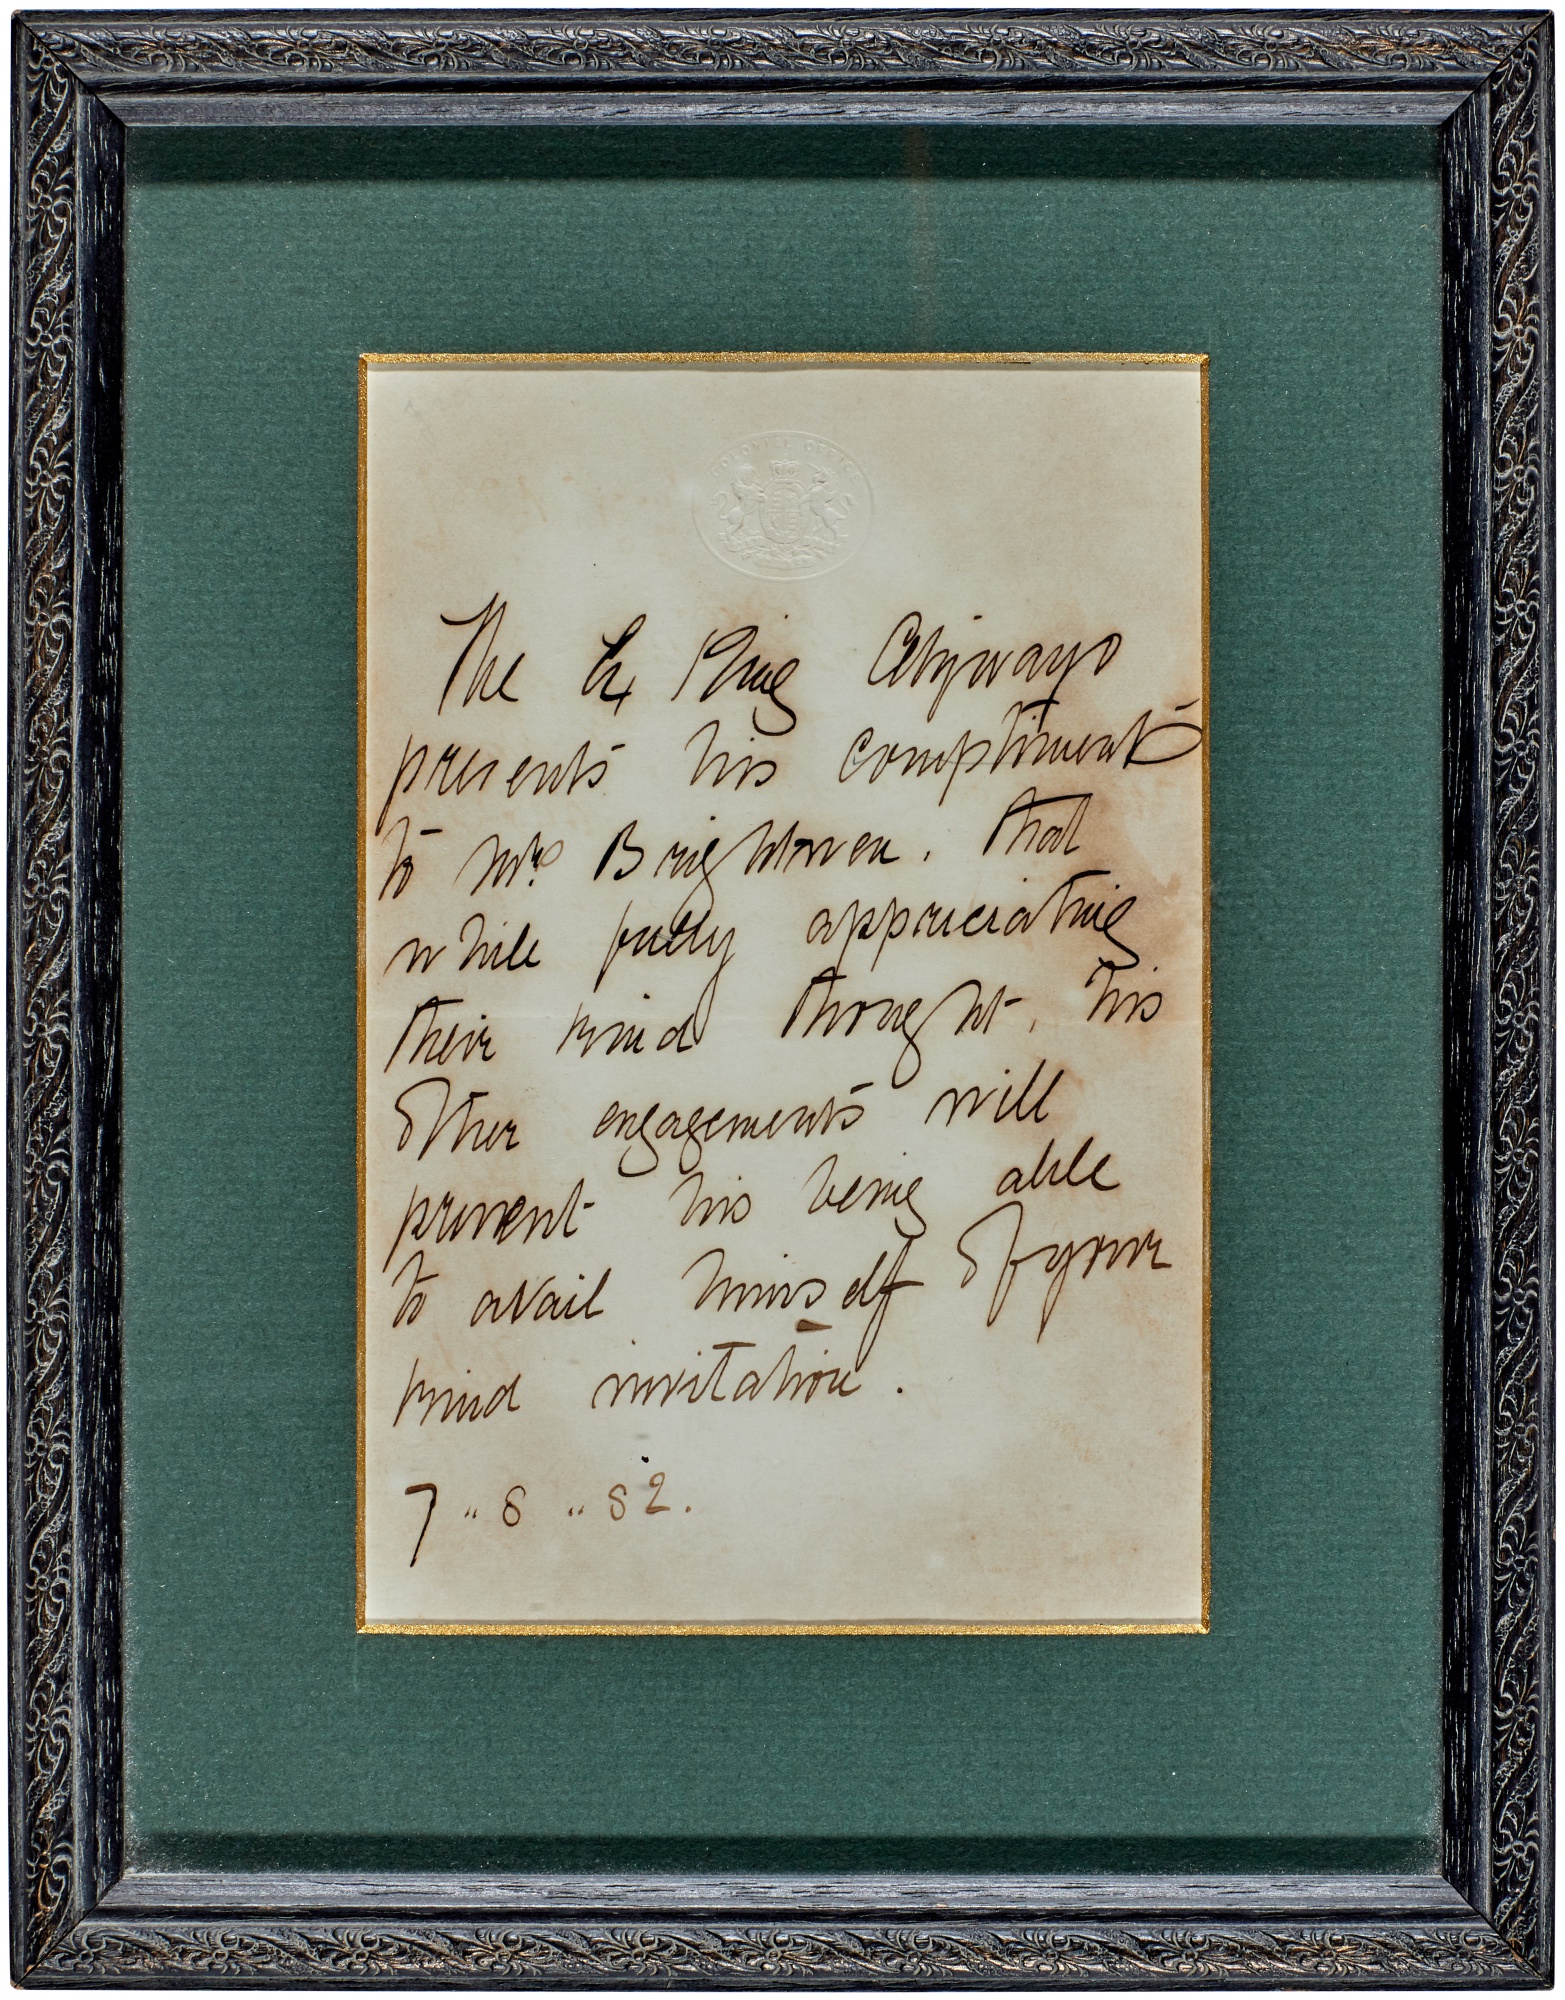 COLONIAL OFFICE
The Ex King Cetywayo
presents his compliments
to Mrs Brightwen. that
while fully appreciating
their kind thought, his
other engagements will
prevent his being able
to avail himself of your
kind invitation.
7 " 8 " 82.